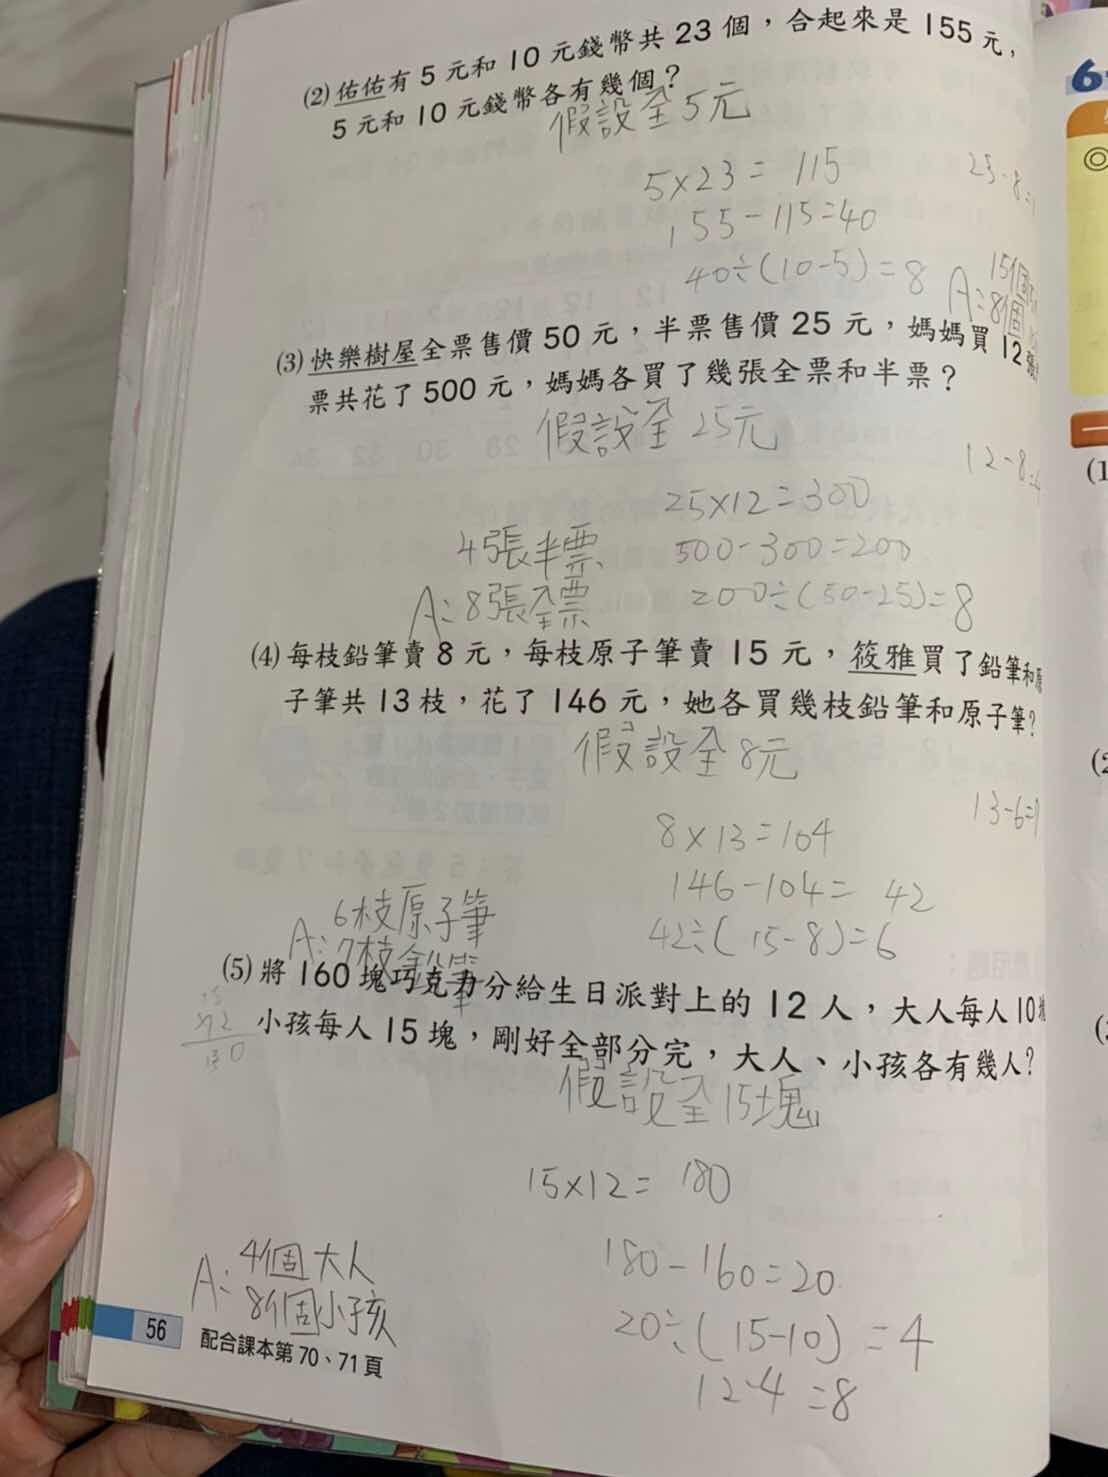 (2) 佑佑有 5 元和 10 元錢幣共 23 個，合起來是 155 元，
5 元和 10 元錢幣各有幾個？
假設全 5元
5×23= 115
155-115=40
40÷(10-5)=8
23-8=1
15個
A:8個
(3) 快樂樹屋全票售價 50 元，半票售價 25 元，媽媽買 12 張
票共花了 500 元，媽媽各買了幾張全票和半票？
假設全 25元
12-8=4
25×12=300
500-300=200
200÷(50-25)=8
4張半票
A:8張全票
(4) 每枝鉛筆賣 8 元，每枝原子筆賣 15 元，筱雅買了鉛筆和原
子筆共 13 枝，花了 146 元，她各買幾枝鉛筆和原子筆？
假設全 8元
13-6=7
8×13=104
146-104= 42
42÷(15-8)=6
6枝原子筆
A:7枝鉛筆
(5) 將 160 塊巧克力分給生日派對上的 12 人，大人每人 10 塊
小孩每人 15 塊，剛好全部分完，大人、小孩各有幾人？
假設全15塊
15×12= 180
180-160=20
20÷(15-10)=4
12-4=8
A:4個大人
8個小孩
56
配合課本第 70、71 頁
6
◎
一
(1
(2